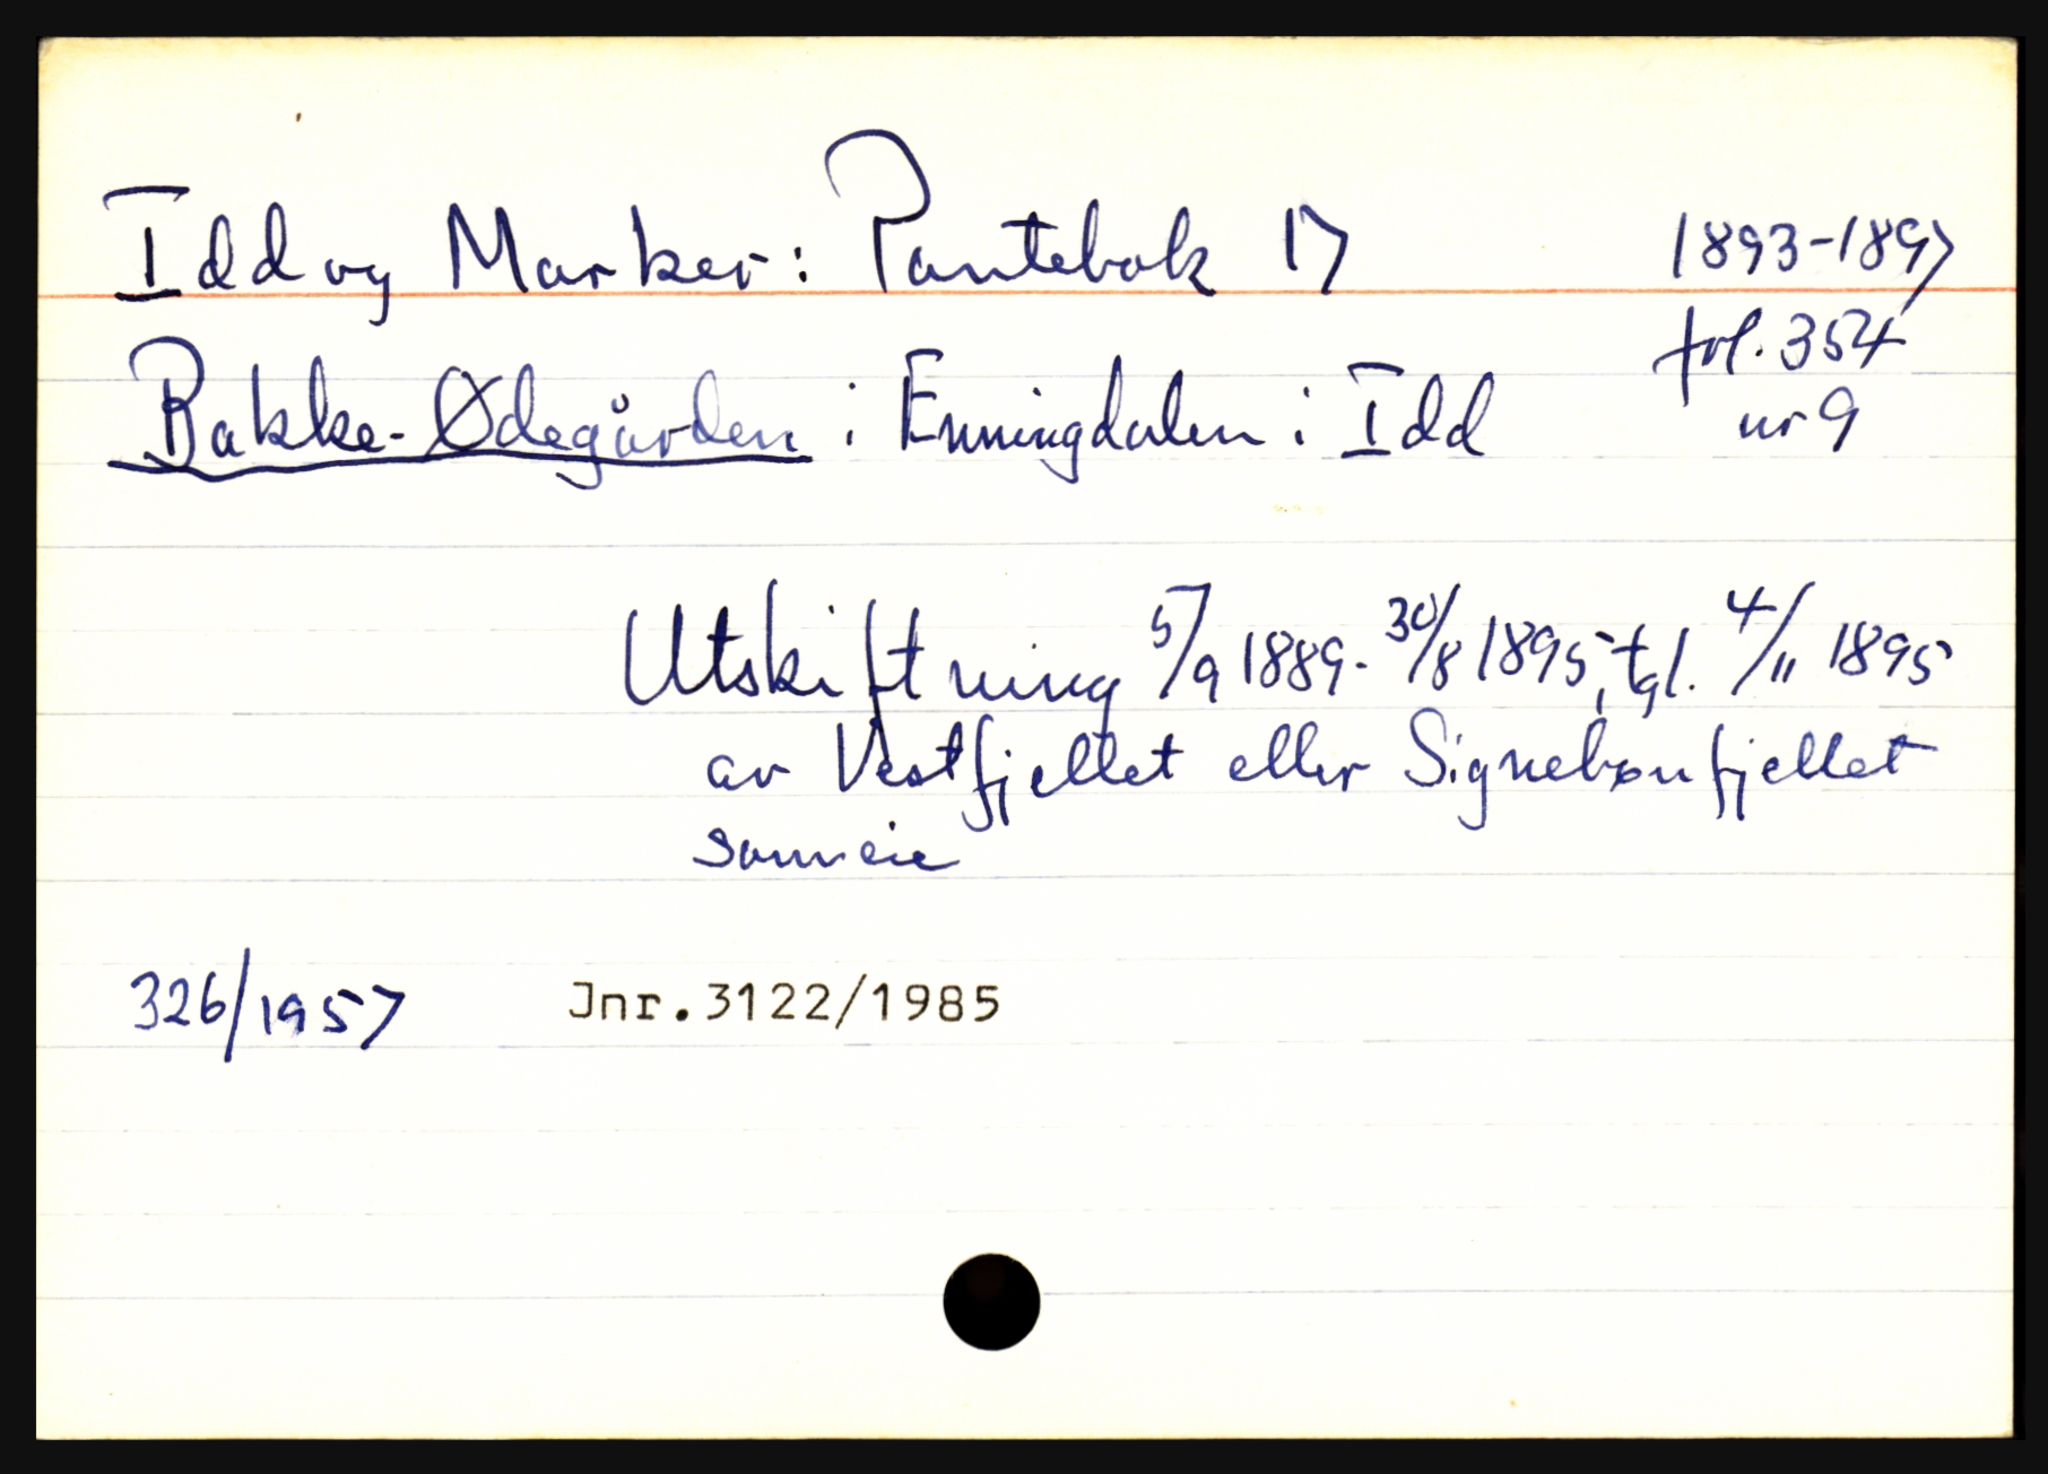 Idd og Marker: Pantebok 17 1893-1897
fol. 354
Bakke-Ødegården i Enningdalen i Idd nr 9
Utskiftning 5/9 1889-30/8 1895, tgl. 4/11 1895
av Vestfjellet eller Signebønfjellet
sameie
326/1957 Jnr.3122/1985